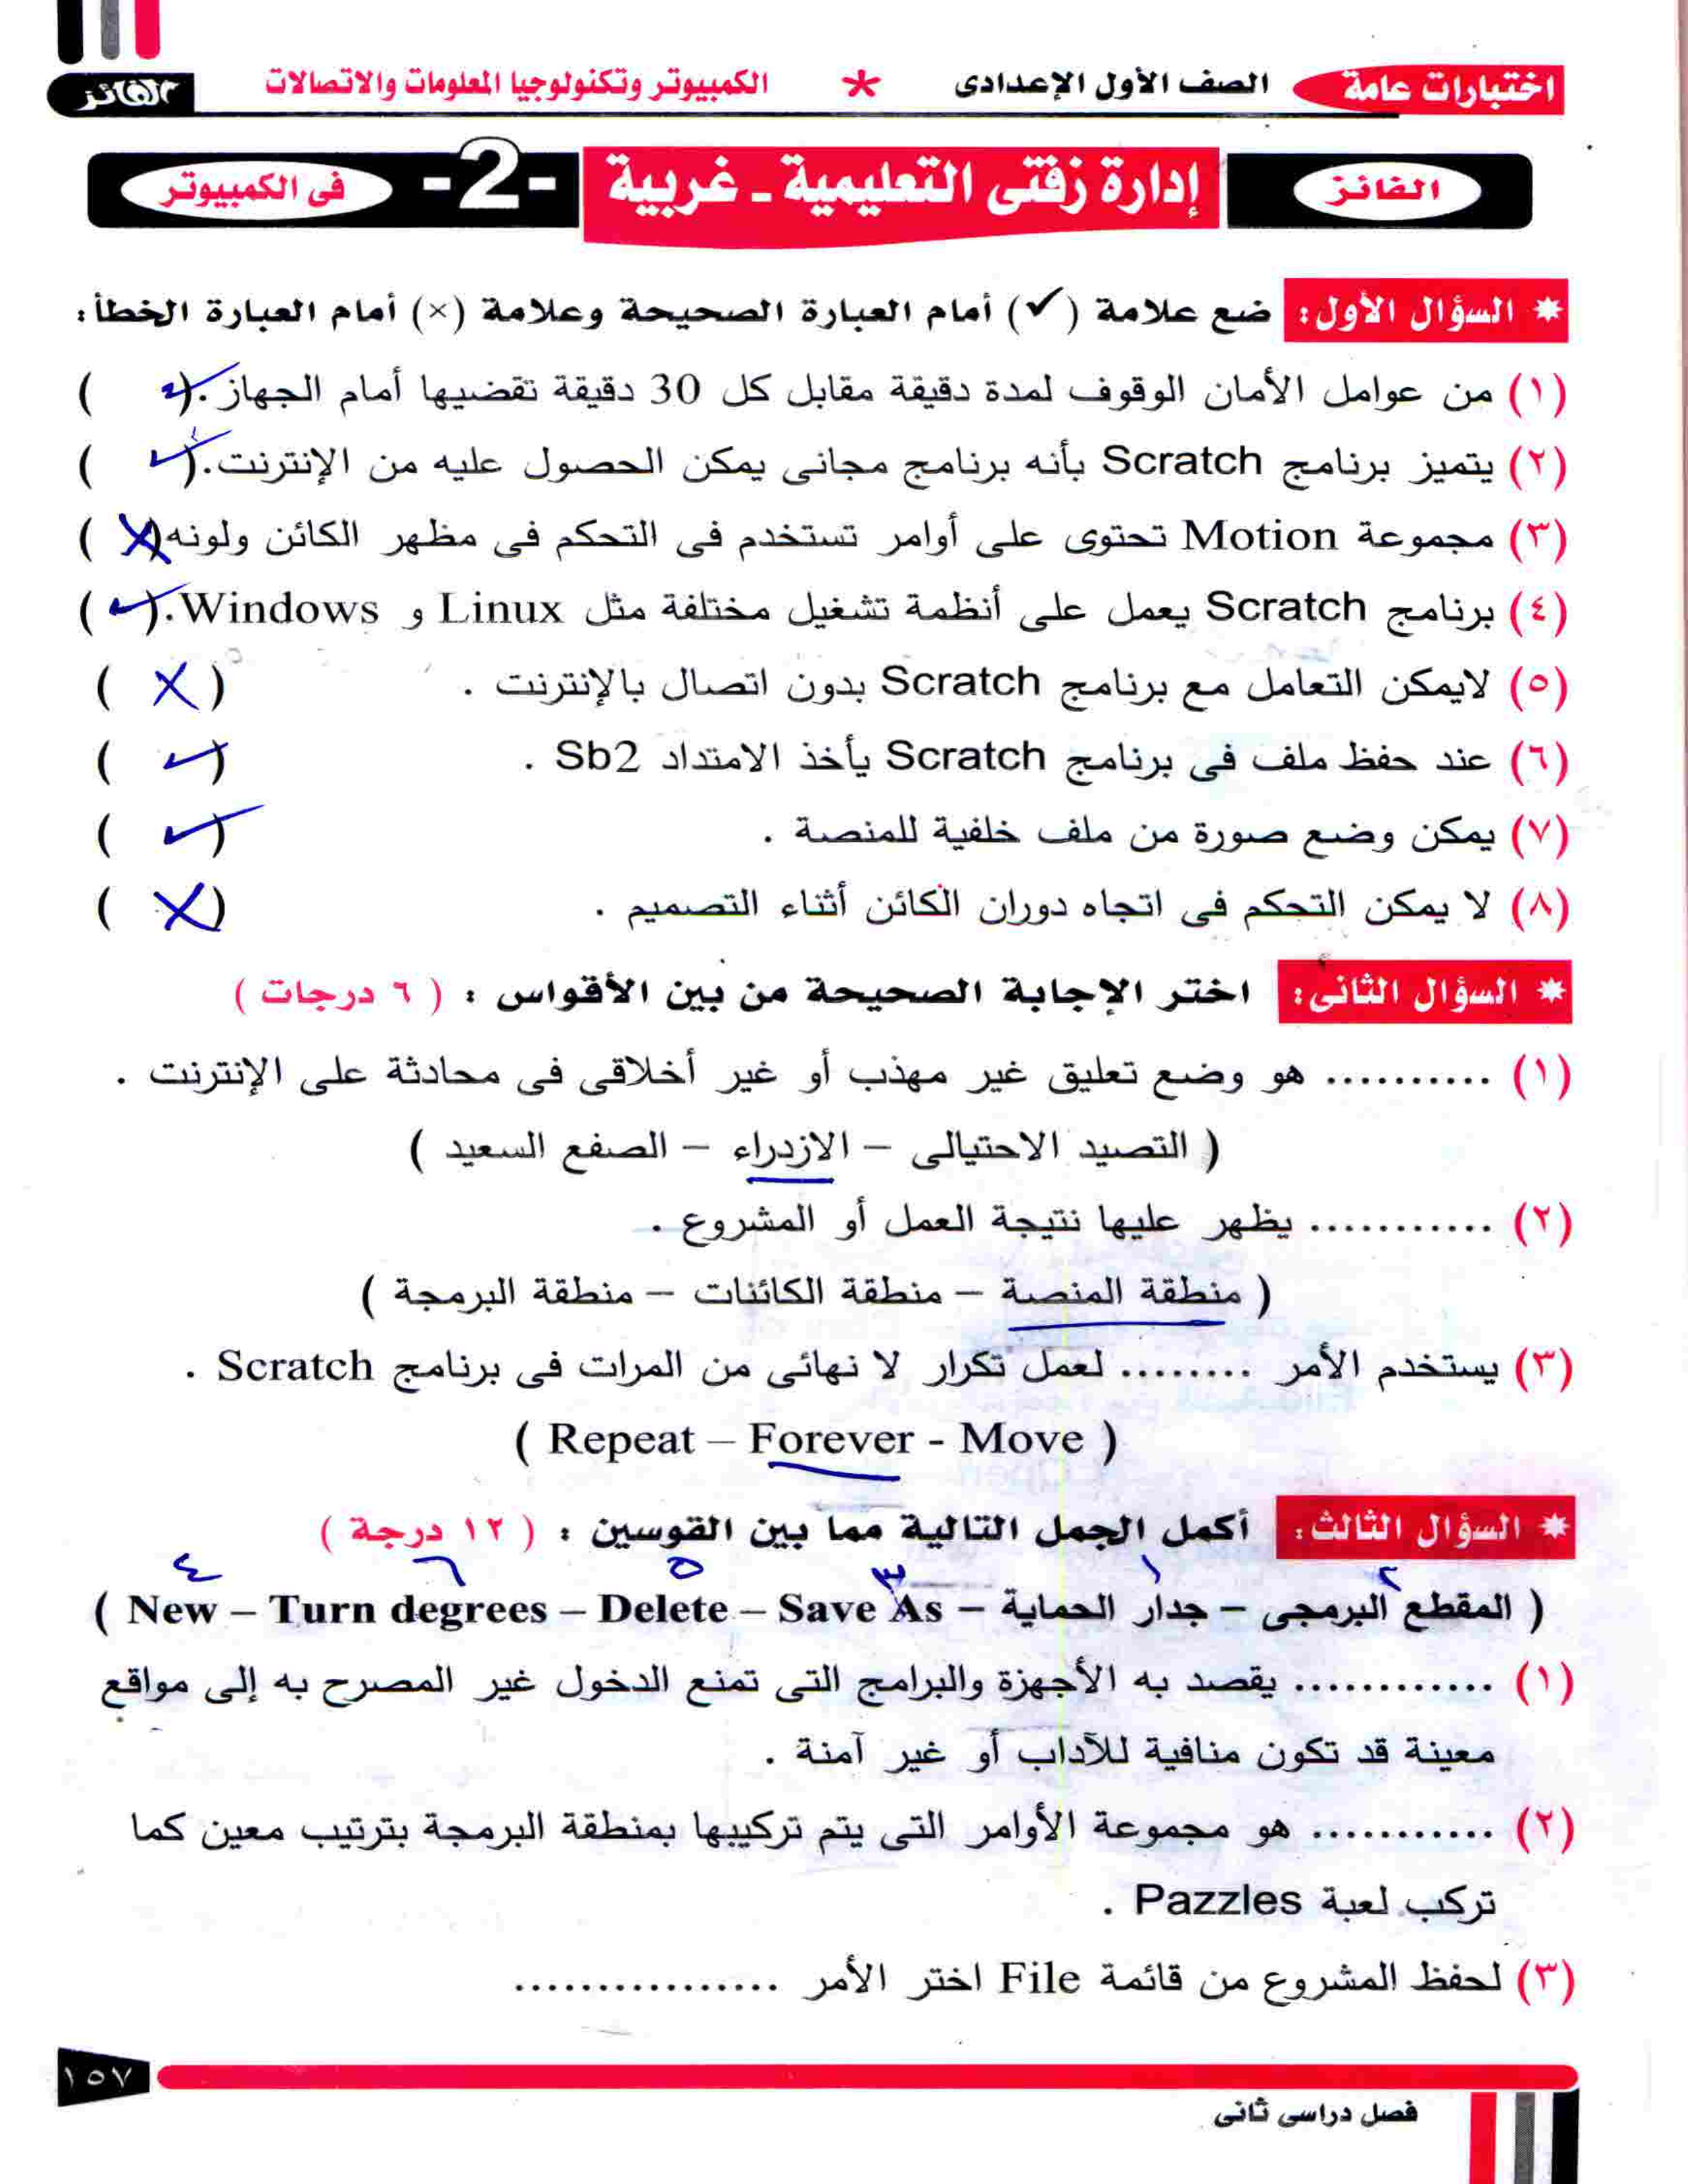 اختبارات عامة الصف الأول الإعدادى * الكمبيوتر وتكنولوجيا المعلومات والاتصالات الفائز
الفائز إدارة زفتى التعليمية - غربية -2- فى الكمبيوتر
* السؤال الأول: ضع علامة (✓) أمام العبارة الصحيحة وعلامة (×) أمام العبارة الخطأ:
(١) من عوامل الأمان الوقوف لمدة دقيقة مقابل كل 30 دقيقة تقضيها أمام الجهاز. (✓)
(٢) يتميز برنامج Scratch بأنه برنامج مجانى يمكن الحصول عليه من الإنترنت. (✓)
(٣) مجموعة Motion تحتوى على أوامر تستخدم فى التحكم فى مظهر الكائن ولونه (X)
(٤) برنامج Scratch يعمل على أنظمة تشغيل مختلفة مثل Linux و Windows. (✓)
(٥) لايمكن التعامل مع برنامج Scratch بدون اتصال بالإنترنت . (X)
(٦) عند حفظ ملف فى برنامج Scratch يأخذ الامتداد Sb2 . (✓)
(٧) يمكن وضع صورة من ملف خلفية للمنصة . (✓)
(٨) لا يمكن التحكم فى اتجاه دوران الكائن أثناء التصميم . (X)
* السؤال الثانى: اختر الإجابة الصحيحة من بين الأقواس : ( ٦ درجات )
(١) .......... هو وضع تعليق غير مهذب أو غير أخلاقى فى محادثة على الإنترنت .
( التصيد الاحتيالى – الازدراء – الصفع السعيد )
(٢) ........... يظهر عليها نتيجة العمل أو المشروع .
( منطقة المنصة – منطقة الكائنات – منطقة البرمجة )
(٣) يستخدم الأمر ........ لعمل تكرار لا نهائى من المرات فى برنامج Scratch .
( Repeat – Forever - Move )
* السؤال الثالث: أكمل الجمل التالية مما بين القوسين : ( ١٢ درجة )
٢ ١ ٣ ٥ ٦ ٤
( المقطع البرمجى – جدار الحماية – New – Turn degrees – Delete – Save As )
(١) ............ يقصد به الأجهزة والبرامج التى تمنع الدخول غير المصرح به إلى مواقع
معينة قد تكون منافية للآداب أو غير آمنة .
(٢) ........... هو مجموعة الأوامر التى يتم تركيبها بمنطقة البرمجة بترتيب معين كما
تركب لعبة Pazzles .
(٣) لحفظ المشروع من قائمة File اختر الأمر ................
١٥٧
فصل دراسى ثانى